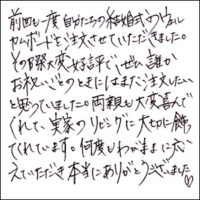 前回も一度自分たちの結婚式のウェル
カムボードを注文させていただきました。
その際大変好評で、ぜひ誰か
お祝いごとのときにはまた注文したい
と思っていました。両親も大変喜んで
くれて、実家のリビングに大切に飾
てくれています。何度もわがままに応
えていただき本当にありがとうございました♡